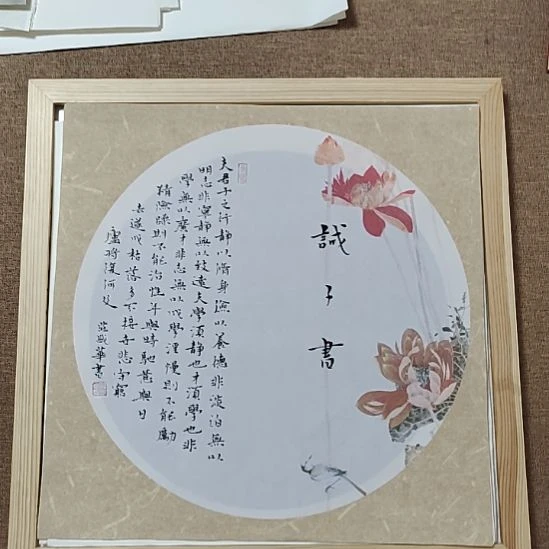 誡子書
夫君子之行靜以脩身儉以養德非淡泊無以
明志非寧靜無以致遠夫學須靜也才須學也非
學無以廣才非志無以成學淫慢則不能勵
精險躁則不能治性年與時馳意與日
去遂成枯落多不接世悲守窮
廬將復何及
華書